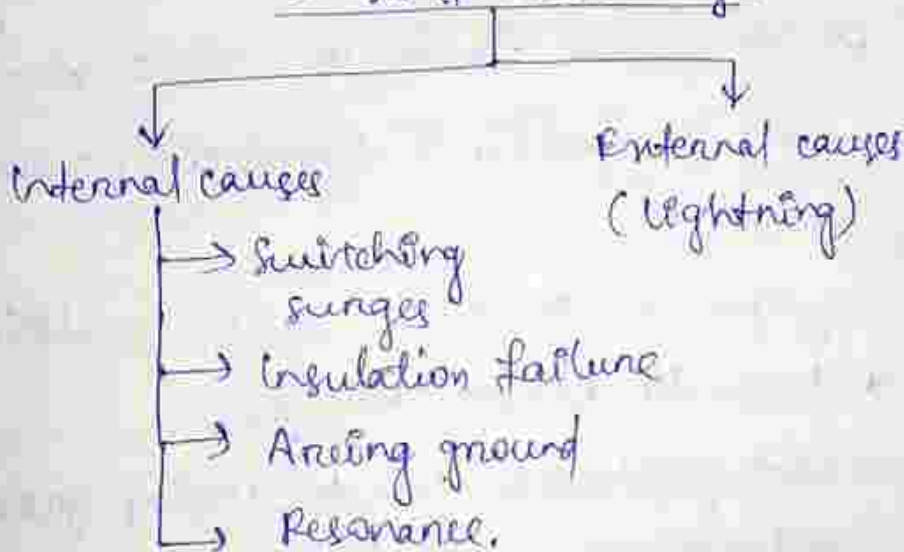 Internal causes
External causes
(Lightning)
Switching
surges
Insulation failure
Arcing ground
Resonance.